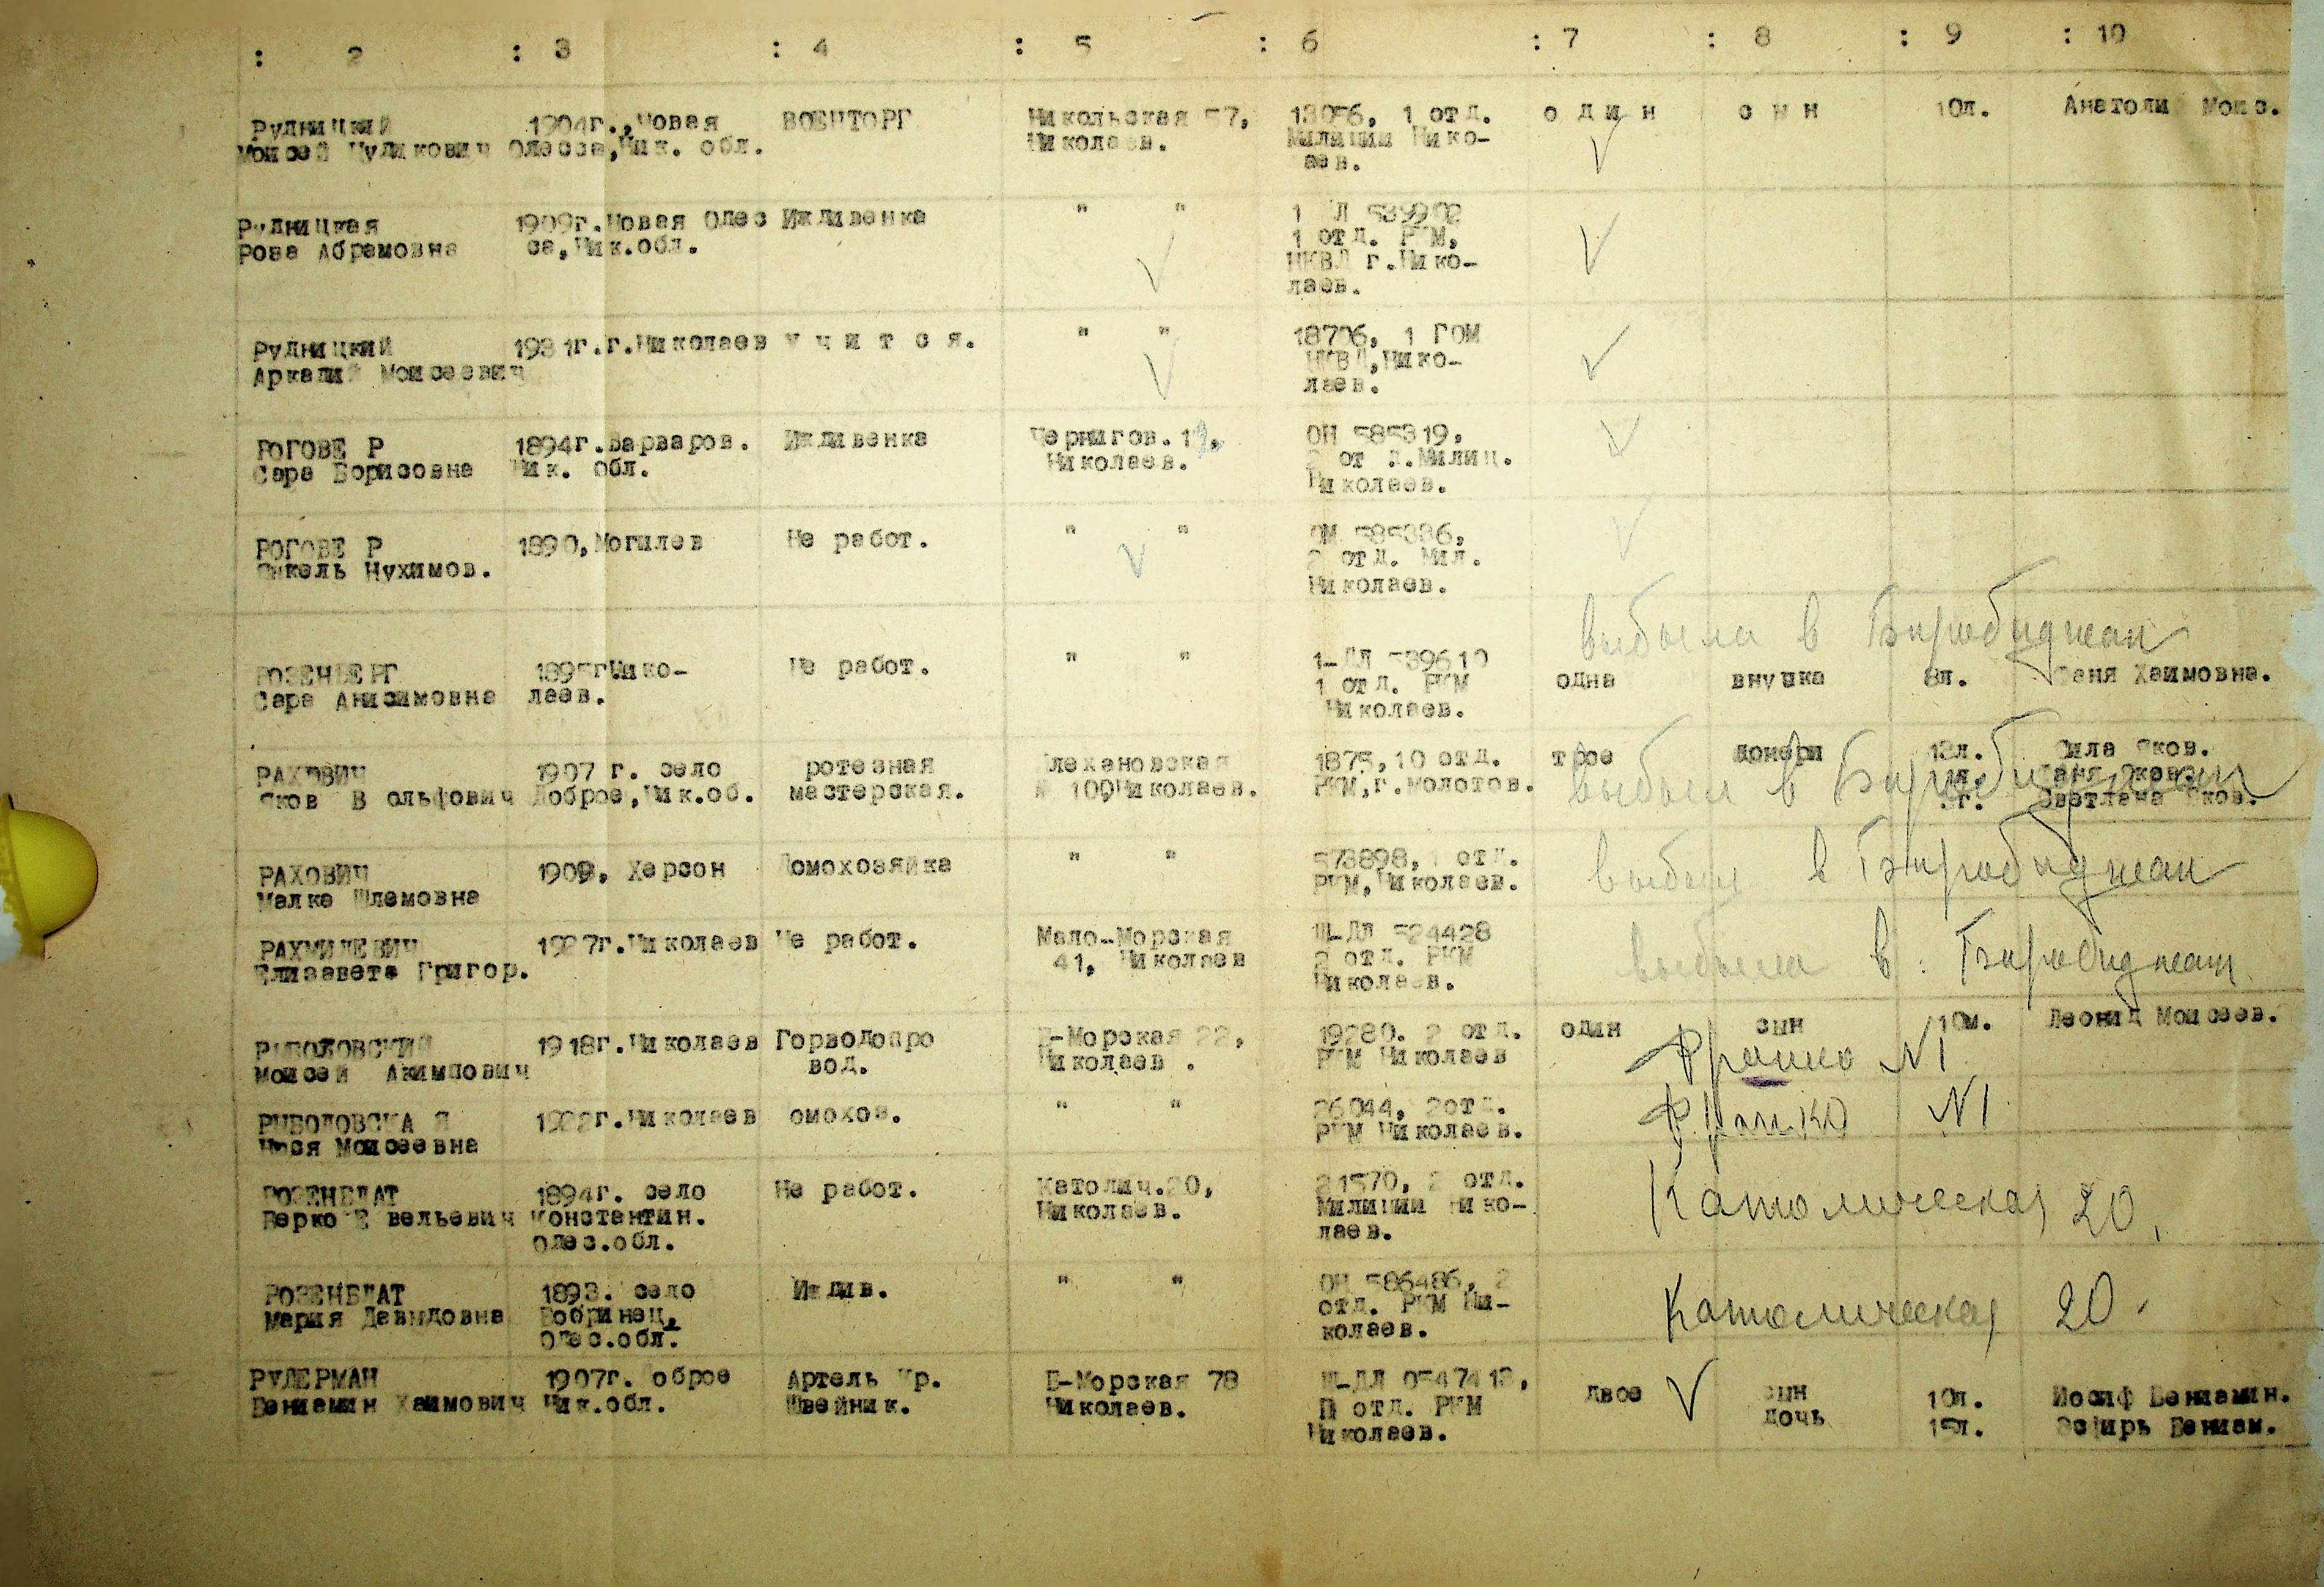 : 2 : 3 : 4 : 5 : 6 : 7 : 8 : 9 : 10
РУДНИЦКИЙ 1904г.,Новая ВОЕНТОРГ Никольская 57, 13056, 1 отд. о д и н с ы н 10л. Анатолий Моис.
Моисей Одесса,Ник. обл. Николаев. Милиции Нико-
аев.
Рудницкая 1909г.Новая Одес Иждивенка " " 1 ДЛ 539902
Роза Абрамовна са,Ник.обл. 1 отд. РКМ,
НКВД г.Нико-
лаев.
Рудницкий 1931г.г.Николаев у ч и т с я. " " 18706, 1 ГОМ
Аркадий Моисеевич НКВД,Нико-
лаев.
РОГОВЕ Р 1894г.Варваров. Иждивенка Чернигов. ОН 585319,
Сара Борисовна Ник. обл. Николаев. 2 от д.Милиц.
Николаев.
РОГОВЕ Р 1890,Могилев Не работ. " " ОМ 585336,
Янкель Нухимов. 2 отд. Мил.
Николаев.
выбыла в Биробиджан
РОЗЕНБЕРГ 1895гНико- Не работ. " " 1-ДЛ 539610
Сара Анисимовна лаев. 1 отд. РКМ одна внучка 8л. Хаимовна.
Николаев.
РАХОВИЧ 1907 г. село ротезная Плехановская 1875,10 отд. трое дочери 13л. Яков.
Яков В ольфович Доброе,Ник.об. мастерская. № 100Николаев. РКМ,г.Молотов. Светлана Яков.
выбыл в Биробиджан
РАХОВИЧ 1909, Херсон Домохозяйка " " 573898, 1 отд.
Малка Шлемовна РКМ,Николаев.
выбыл в Биробиджан
РАХМИЛЕВИЧ 1927г.Николаев Не работ. Мало-Морская Ш-ДЛ 524428
Елизавета Григор. 41, Николаев 2 отд. РКМ
Николаев.
выбыла в Биробиджан
РЫБОЛОВСКИЙ 1918г.Николаев Горводопро Б-Морская 22, 19280. 2 отд. один сын 10м. Леонид Моисеев.
Моисей Акимович вод. Николаев . РКМ Николаев
Франко N1
РЫБОЛОВСКА Я 1922г.Николаев омохоз. " " 26044, 2отд.
Моисеевна РКМ Николаев.
Франко N1
РОЗЕНБЛАТ 1894г. село Не работ. Католич.20, 21570, 2 отд.
Берко вельевич Константин. Николаев. Милиции Нико-
Одес.обл. лаев.
Католическая 20,
РОЗЕНБЛАТ 1893. село Ижdив. " " ОН 586486, 2
Мария Давыдовна Бобринец, отд. РКМ Ни-
Одес.обл. колаев.
Католическая 20
РУДЕРМАН 1907г. оброе Артель Кр. Б-Морская 78 Ш-ДЛ 0547413, двое сын 10л. Иосиф Вениамин.
Вениамин Хаимович Ник.обл. Швейник. Николаев. П отд. РКМ дочь 15л. Эсфирь Вениам.
Николаев.